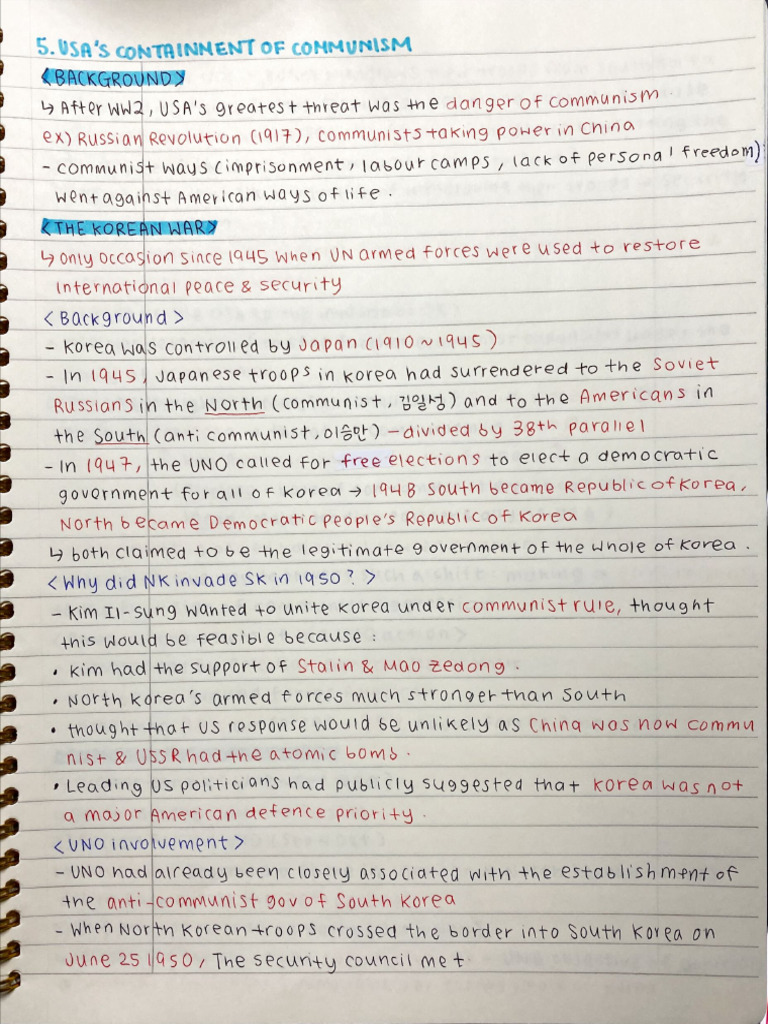 5. USA'S CONTAINMENT OF COMMUNISM
<BACKGROUND>
↳ After WW2, USA's greatest threat was the danger of communism
ex) Russian Revolution (1917), communists taking power in China
- communist ways (imprisonment, labour camps, lack of personal freedom)
went against American ways of life.
<THE KOREAN WAR>
↳ only occasion since 1945 when UN armed forces were used to restore
international peace & security
<Background>
- Korea was controlled by Japan (1910 ~ 1945)
- In 1945, Japanese troops in Korea had surrendered to the Soviet
Russians in the North (communist, 김일성) and to the Americans in
the South (anti communist, 이승만) - divided by 38th parallel
- In 1947, the UNO called for free elections to elect a democratic
government for all of Korea → 1948 South became Republic of Korea,
North became Democratic People's Republic of Korea
↳ both claimed to be the legitimate government of the whole of Korea.
<Why did NK invade SK in 1950?>
- Kim Il-sung wanted to unite Korea under communist rule, thought
this would be feasible because:
• Kim had the support of Stalin & Mao Zedong.
• North Korea's armed forces much stronger than South
• thought that US response would be unlikely as China was now commu
nist & USSR had the atomic bomb.
• Leading US politicians had publicly suggested that Korea was not
a major American defence priority.
<UNO involvement>
- UNO had already been closely associated with the establishment of
the anti-communist gov of South Korea
- When North Korean troops crossed the border into South Korea on
June 25 1950, The security council met